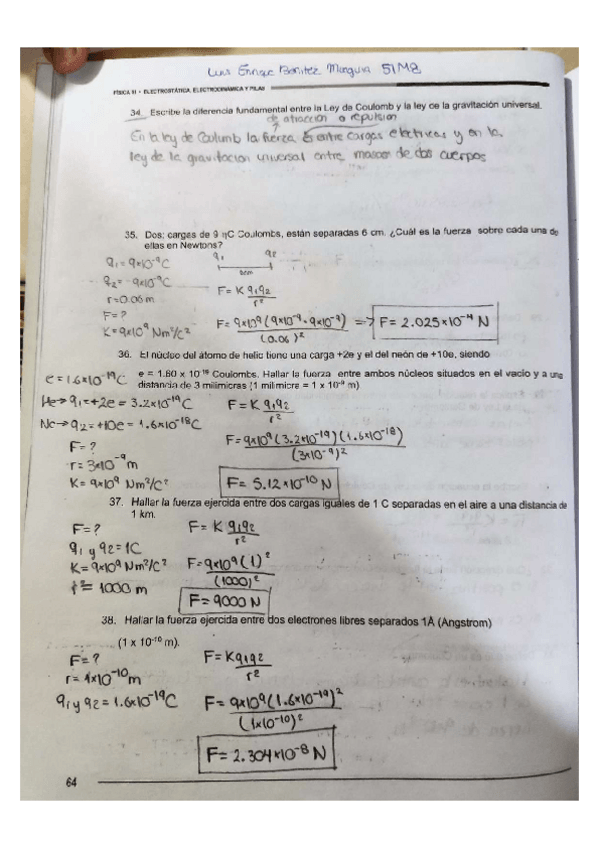 Luis Enrique Benitez Munguia 5IM8
FÍSICA III - ELECTROSTÁTICA, ELECTRODINÁMICA Y PILAS
34. Escribe la diferencia fundamental entre la Ley de Coulomb y la ley de la gravitación universal.
de atraccion o repulsion
En la ley de Coulumb la fuerza entre cargas electricas y en la
ley de la gravitacion universal entre masas de dos cuerpos
35. Dos cargas de 9 ηC Coulombs, están separadas 6 cm. ¿Cuál es la fuerza sobre cada una de
ellas en Newtons?
q1 = 9x10⁻⁹C
q1 q2
q2 = 9x10⁻⁹C
6cm
r = 0.06 m
F = K q1q2
r²
F = ?
K = 9x10⁹ Nm²/c²
F = 9x10⁹ (9x10⁻⁹ · 9x10⁻⁹) => F = 2.025x10⁻⁴ N
(0.06)²
36. El núcleo del átomo de helio tiene una carga +2e y el del neón de +10e, siendo
e = 1.6x10⁻¹⁹C
e = 1.60 x 10⁻¹⁹ Coulombs. Hallar la fuerza entre ambos núcleos situados en el vacío y a una
distancia de 3 milimicras (1 milimicre = 1 x 10⁻⁹ m)
He → q1 = +2e = 3.2x10⁻¹⁹C
F = K q1q2
r²
Ne → q2 = +10e = 1.6x10⁻¹⁸C
F = ?
F = 9x10⁹ (3.2x10⁻¹⁹)(1.6x10⁻¹⁸)
(3x10⁻⁹)²
r = 3x10⁻⁹ m
K = 9x10⁹ Nm²/c²
F = 5.12x10⁻¹⁰ N
37. Hallar la fuerza ejercida entre dos cargas iguales de 1 C separadas en el aire a una distancia de
1 km.
F = ?
F = K q1q2
r²
q1 y q2 = 1C
K = 9x10⁹ Nm²/c²
F = 9x10⁹ (1)²
(1000)²
r = 1000 m
F = 9000 N
38. Hallar la fuerza ejercida entre dos electrones libres separados 1Å (Angstrom)
(1 x 10⁻¹⁰ m).
F = ?
F = K q1q2
r²
r = 1x10⁻¹⁰ m
q1 y q2 = 1.6x10⁻¹⁹C
F = 9x10⁹ (1.6x10⁻¹⁹)²
(1x10⁻¹⁰)²
F = 2.304x10⁻⁸ N
64